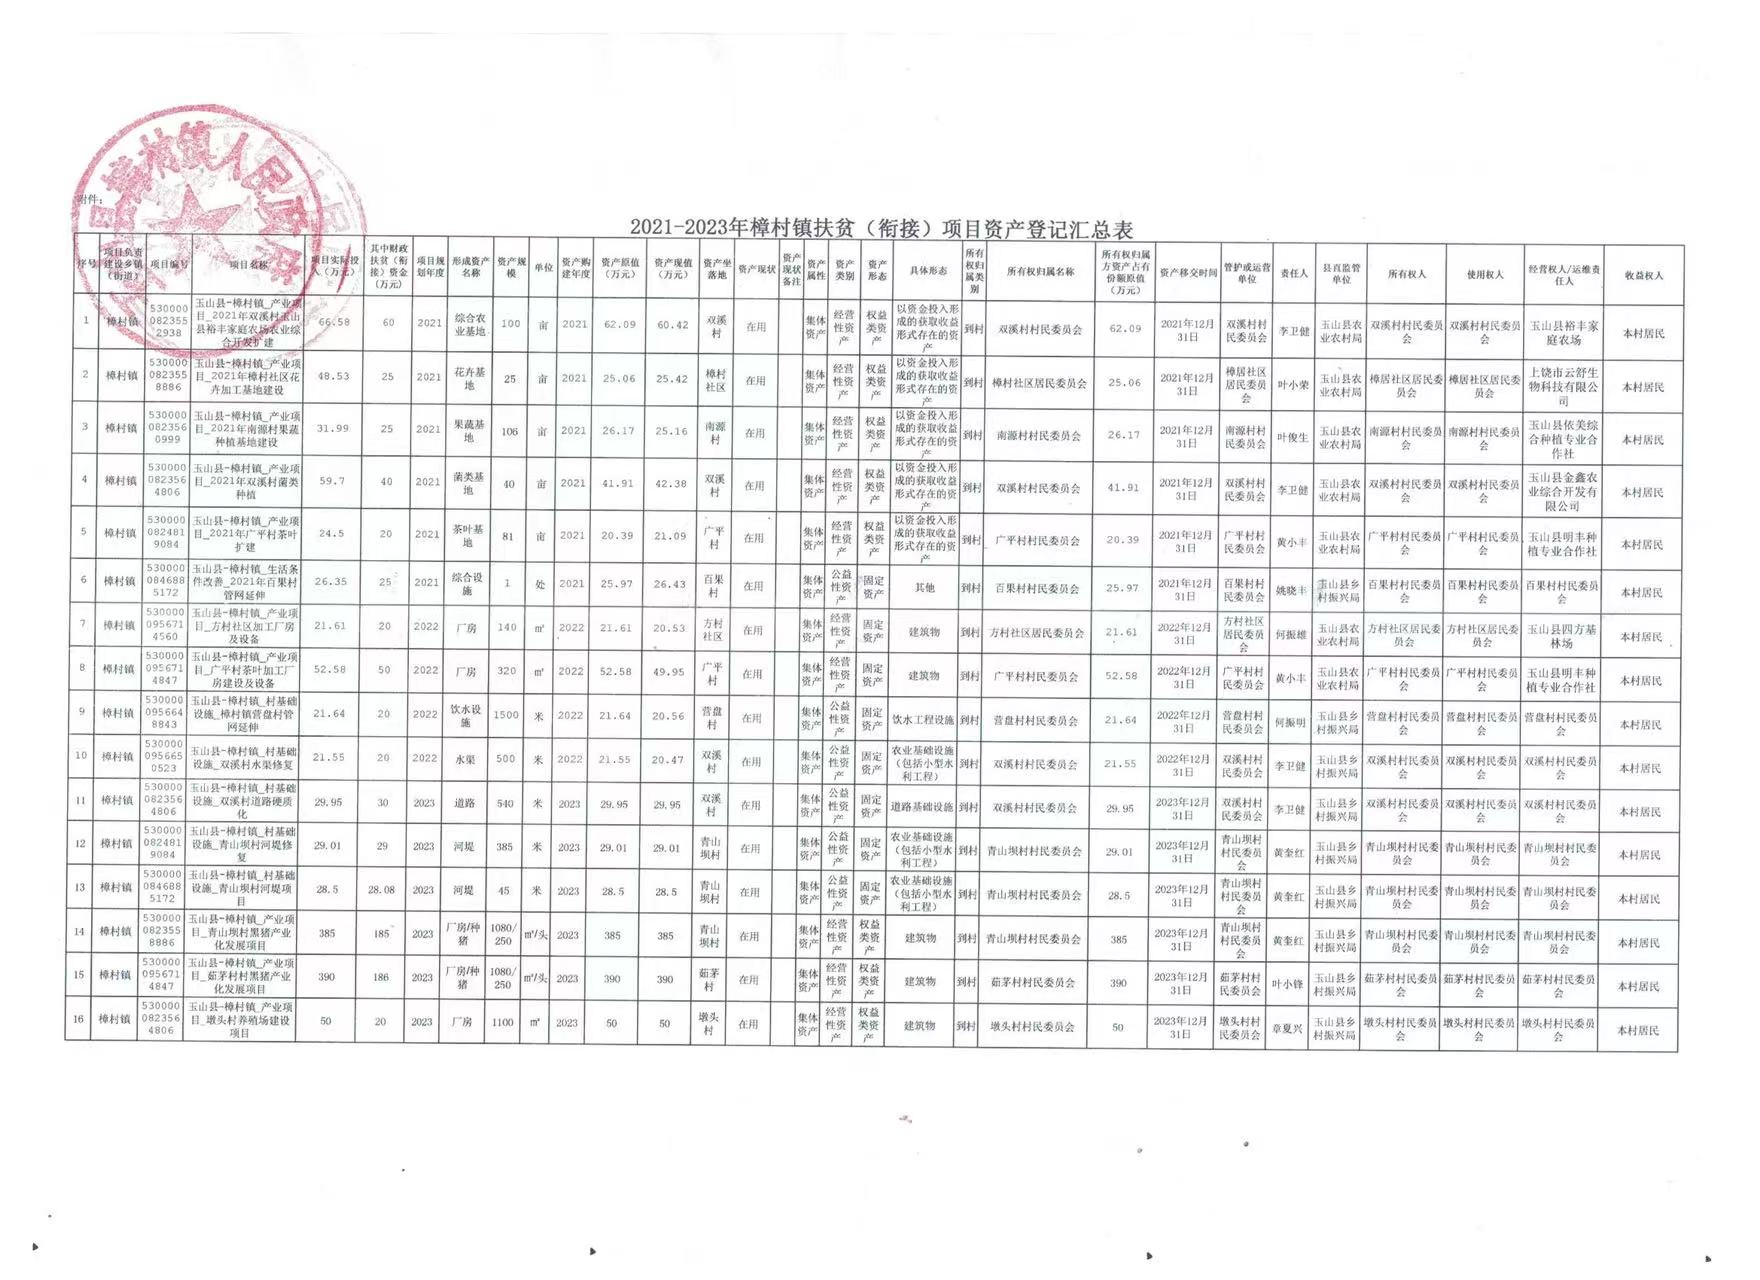 樟村镇人民政府
附件：
2021-2023年樟村镇扶贫（衔接）项目资产登记汇总表
序号 项目负责建设乡镇（街道） 项目编号 项目名称 项目实际投入（万元） 其中财政扶贫（衔接）资金（万元） 项目规划年度 形成资产名称 资产规模 单位 资产购建年度 资产原值（万元） 资产现值（万元） 资产坐落地 资产现状 资产现状备注 资产属性 资产类别 资产形态 具体形态 所有权归属类别 所有权归属名称 所有权归属方资产占有份额原值（万元） 资产移交时间 管护或运营单位 责任人 县直监管单位 所有权人 使用权人 经营权人/运维责任人 收益权人
1 樟村镇 5300000823552938 玉山县-樟村镇_产业项目_2021年双溪村玉山县裕丰家庭农场农业综合开发扩建 66.58 60 2021 综合农业基地 100 亩 2021 62.09 60.42 双溪村 在用 集体资产 经营性资产 权益类资产 以资金投入形成的获取收益形式存在的资产 到村 双溪村村民委员会 62.09 2021年12月31日 双溪村村民委员会 李卫健 玉山县农业农村局 双溪村村民委员会 双溪村村民委员会 玉山县裕丰家庭农场 本村居民
2 樟村镇 5300000823558886 玉山县-樟村镇_产业项目_2021年樟村社区花卉加工基地建设 48.53 25 2021 花卉基地 25 亩 2021 25.06 25.42 樟村社区 在用 集体资产 经营性资产 权益类资产 以资金投入形成的获取收益形式存在的资产 到村 樟村社区居民委员会 25.06 2021年12月31日 樟居社区居民委员会 叶小荣 玉山县农业农村局 樟居社区居民委员会 樟居社区居民委员会 上饶市云舒生物科技有限公司 本村居民
3 樟村镇 5300000823560999 玉山县-樟村镇_产业项目_2021年南源村果蔬种植基地建设 31.99 25 2021 果蔬基地 106 亩 2021 26.17 25.16 南源村 在用 集体资产 经营性资产 权益类资产 以资金投入形成的获取收益形式存在的资产 到村 南源村村民委员会 26.17 2021年12月31日 南源村村民委员会 叶俊生 玉山县农业农村局 南源村村民委员会 南源村村民委员会 玉山县依美综合种植专业合作社 本村居民
4 樟村镇 5300000823564806 玉山县-樟村镇_产业项目_2021年双溪村菌类种植 59.7 40 2021 菌类基地 40 亩 2021 41.91 42.38 双溪村 在用 集体资产 经营性资产 权益类资产 以资金投入形成的获取收益形式存在的资产 到村 双溪村村民委员会 41.91 2021年12月31日 双溪村村民委员会 李卫健 玉山县农业农村局 双溪村村民委员会 双溪村村民委员会 玉山县金鑫农业综合开发有限公司 本村居民
5 樟村镇 5300000824819084 玉山县-樟村镇_产业项目_2021年广平村茶叶扩建 24.5 20 2021 茶叶基地 81 亩 2021 20.39 21.09 广平村 在用 集体资产 经营性资产 权益类资产 以资金投入形成的获取收益形式存在的资产 到村 广平村村民委员会 20.39 2021年12月31日 广平村村民委员会 黄小丰 玉山县农业农村局 广平村村民委员会 广平村村民委员会 玉山县明丰种植专业合作社 本村居民
6 樟村镇 5300000846885172 玉山县-樟村镇_生活条件改善_2021年百果村管网延伸 26.35 25 2021 综合设施 1 处 2021 25.97 26.43 百果村 在用 集体资产 公益性资产 固定资产 其他 到村 百果村村民委员会 25.97 2021年12月31日 百果村村民委员会 姚晓丰 玉山县乡村振兴局 百果村村民委员会 百果村村民委员会 百果村村民委员会 本村居民
7 樟村镇 5300000956714560 玉山县-樟村镇_产业项目_方村社区加工厂房及设备 21.61 20 2022 厂房 140 ㎡ 2022 21.61 20.53 方村社区 在用 集体资产 经营性资产 固定资产 建筑物 到村 方村社区居民委员会 21.61 2022年12月31日 方村社区居民委员会 何振雄 玉山县农业农村局 方村社区居民委员会 方村社区居民委员会 玉山县四方基林场 本村居民
8 樟村镇 5300000956714847 玉山县-樟村镇_产业项目_广平村茶叶加工厂房建设及设备 52.58 50 2022 厂房 320 ㎡ 2022 52.58 49.95 广平村 在用 集体资产 经营性资产 固定资产 建筑物 到村 广平村村民委员会 52.58 2022年12月31日 广平村村民委员会 黄小丰 玉山县农业农村局 广平村村民委员会 广平村村民委员会 玉山县明丰种植专业合作社 本村居民
9 樟村镇 5300000956648843 玉山县-樟村镇_村基础设施_樟村镇营盘村管网延伸 21.64 20 2022 饮水设施 1500 米 2022 21.64 20.56 营盘村 在用 集体资产 公益性资产 固定资产 饮水工程设施 到村 营盘村村民委员会 21.64 2022年12月31日 营盘村村民委员会 何振明 玉山县乡村振兴局 营盘村村民委员会 营盘村村民委员会 营盘村村民委员会 本村居民
10 樟村镇 5300000956650523 玉山县-樟村镇_村基础设施_双溪村水渠修复 21.55 20 2022 水渠 500 米 2022 21.55 20.47 双溪村 在用 集体资产 公益性资产 固定资产 农业基础设施（包括小型水利工程） 到村 双溪村村民委员会 21.55 2022年12月31日 双溪村村民委员会 李卫健 玉山县乡村振兴局 双溪村村民委员会 双溪村村民委员会 双溪村村民委员会 本村居民
11 樟村镇 5300000823564806 玉山县-樟村镇_村基础设施_双溪村道路硬质化 29.95 30 2023 道路 540 米 2023 29.95 29.95 双溪村 在用 集体资产 公益性资产 固定资产 道路基础设施 到村 双溪村村民委员会 29.95 2023年12月31日 双溪村村民委员会 李卫健 玉山县乡村振兴局 双溪村村民委员会 双溪村村民委员会 双溪村村民委员会 本村居民
12 樟村镇 5300000824819084 玉山县-樟村镇_村基础设施_青山坝村河堤修复 29.01 29 2023 河堤 385 米 2023 29.01 29.01 青山坝村 在用 集体资产 公益性资产 固定资产 农业基础设施（包括小型水利工程） 到村 青山坝村村民委员会 29.01 2023年12月31日 青山坝村村民委员会 黄奎红 玉山县乡村振兴局 青山坝村村民委员会 青山坝村村民委员会 青山坝村村民委员会 本村居民
13 樟村镇 5300000846885172 玉山县-樟村镇_村基础设施_青山坝村河堤项目 28.5 28.08 2023 河堤 45 米 2023 28.5 28.5 青山坝村 在用 集体资产 公益性资产 固定资产 农业基础设施（包括小型水利工程） 到村 青山坝村村民委员会 28.5 2023年12月31日 青山坝村村民委员会 黄奎红 玉山县乡村振兴局 青山坝村村民委员会 青山坝村村民委员会 青山坝村村民委员会 本村居民
14 樟村镇 5300000823558886 玉山县-樟村镇_产业项目_青山坝村黑猪产业化发展项目 385 185 2023 厂房/种猪 1080/250 ㎡/头 2023 385 385 青山坝村 在用 集体资产 经营性资产 权益类资产 建筑物 到村 青山坝村村民委员会 385 2023年12月31日 青山坝村村民委员会 黄奎红 玉山县乡村振兴局 青山坝村村民委员会 青山坝村村民委员会 青山坝村村民委员会 本村居民
15 樟村镇 5300000956714847 玉山县-樟村镇_产业项目_茹茅村村黑猪产业化发展项目 390 186 2023 厂房/种猪 1080/250 ㎡/头 2023 390 390 茹茅村 在用 集体资产 经营性资产 权益类资产 建筑物 到村 茹茅村村民委员会 390 2023年12月31日 茹茅村村民委员会 叶小锋 玉山县乡村振兴局 茹茅村村民委员会 茹茅村村民委员会 茹茅村村民委员会 本村居民
16 樟村镇 5300000823564806 玉山县-樟村镇_产业项目_墩头村养殖场建设项目 50 20 2023 厂房 1100 ㎡ 2023 50 50 墩头村 在用 集体资产 经营性资产 权益类资产 建筑物 到村 墩头村村民委员会 50 2023年12月31日 墩头村村民委员会 章夏兴 玉山县乡村振兴局 墩头村村民委员会 墩头村村民委员会 墩头村村民委员会 本村居民